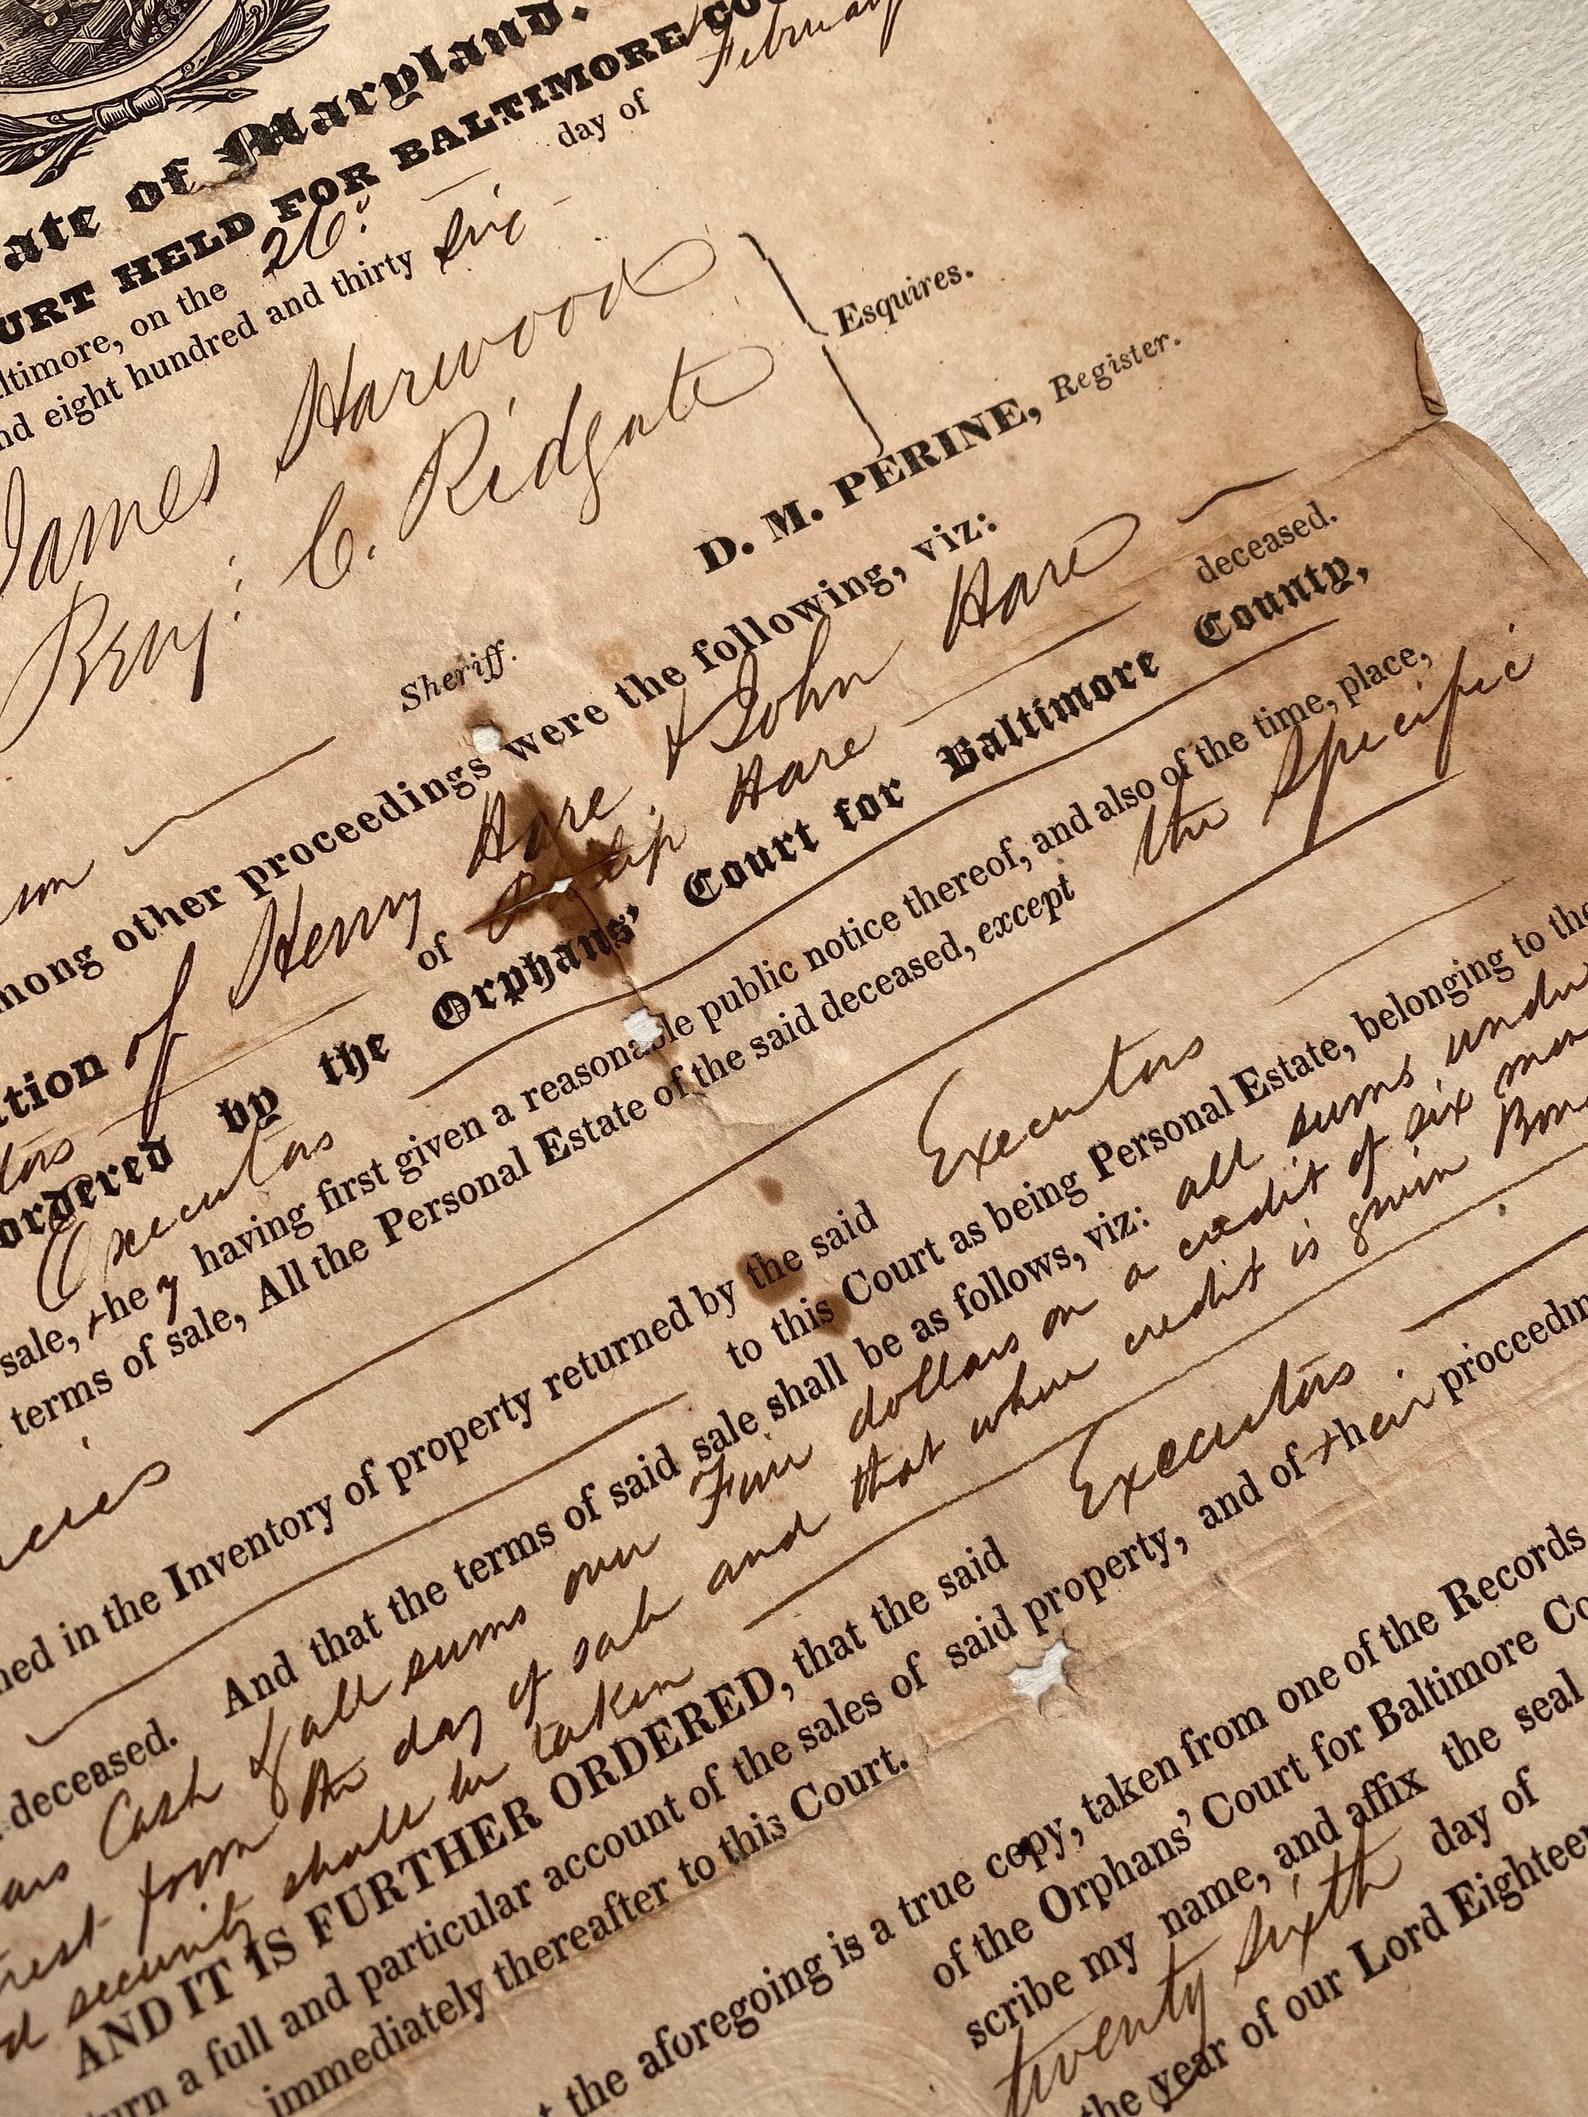 ate of Maryland.
URT HELD FOR BALTIMORE COU
ltimore, on the 26. day of February
nd eight hundred and thirty six
James Harwood
Benj: C. Ridgate
Esquires.
Sheriff.
D. M. PERINE, Register.
mong other proceedings were the following, viz:
ition of Henry Hare & John Hare
tors of Philip Hare deceased.
ordered by the Orphans' Court for Baltimore County,
Executors
sale, they having first given a reasonable public notice thereof, and also of the time, place,
terms of sale, All the Personal Estate of the said deceased, except the Specific
acies
ned in the Inventory of property returned by the said Executors
to this Court as being Personal Estate, belonging to the
deceased. And that the terms of said sale shall be as follows, viz: all sums under
ars Cash & all sums over Five dollars on a credit of six mon
rest from the day of sale and that where credit is given Bon
d security shall be taken
AND IT IS FURTHER ORDERED, that the said Executors
urn a full and particular account of the sales of said property, and of their proceedin
immediately thereafter to this Court.
t the aforegoing is a true copy, taken from one of the Records
of the Orphans' Court for Baltimore Co
scribe my name, and affix the seal
twenty sixth day of
the year of our Lord Eighteen